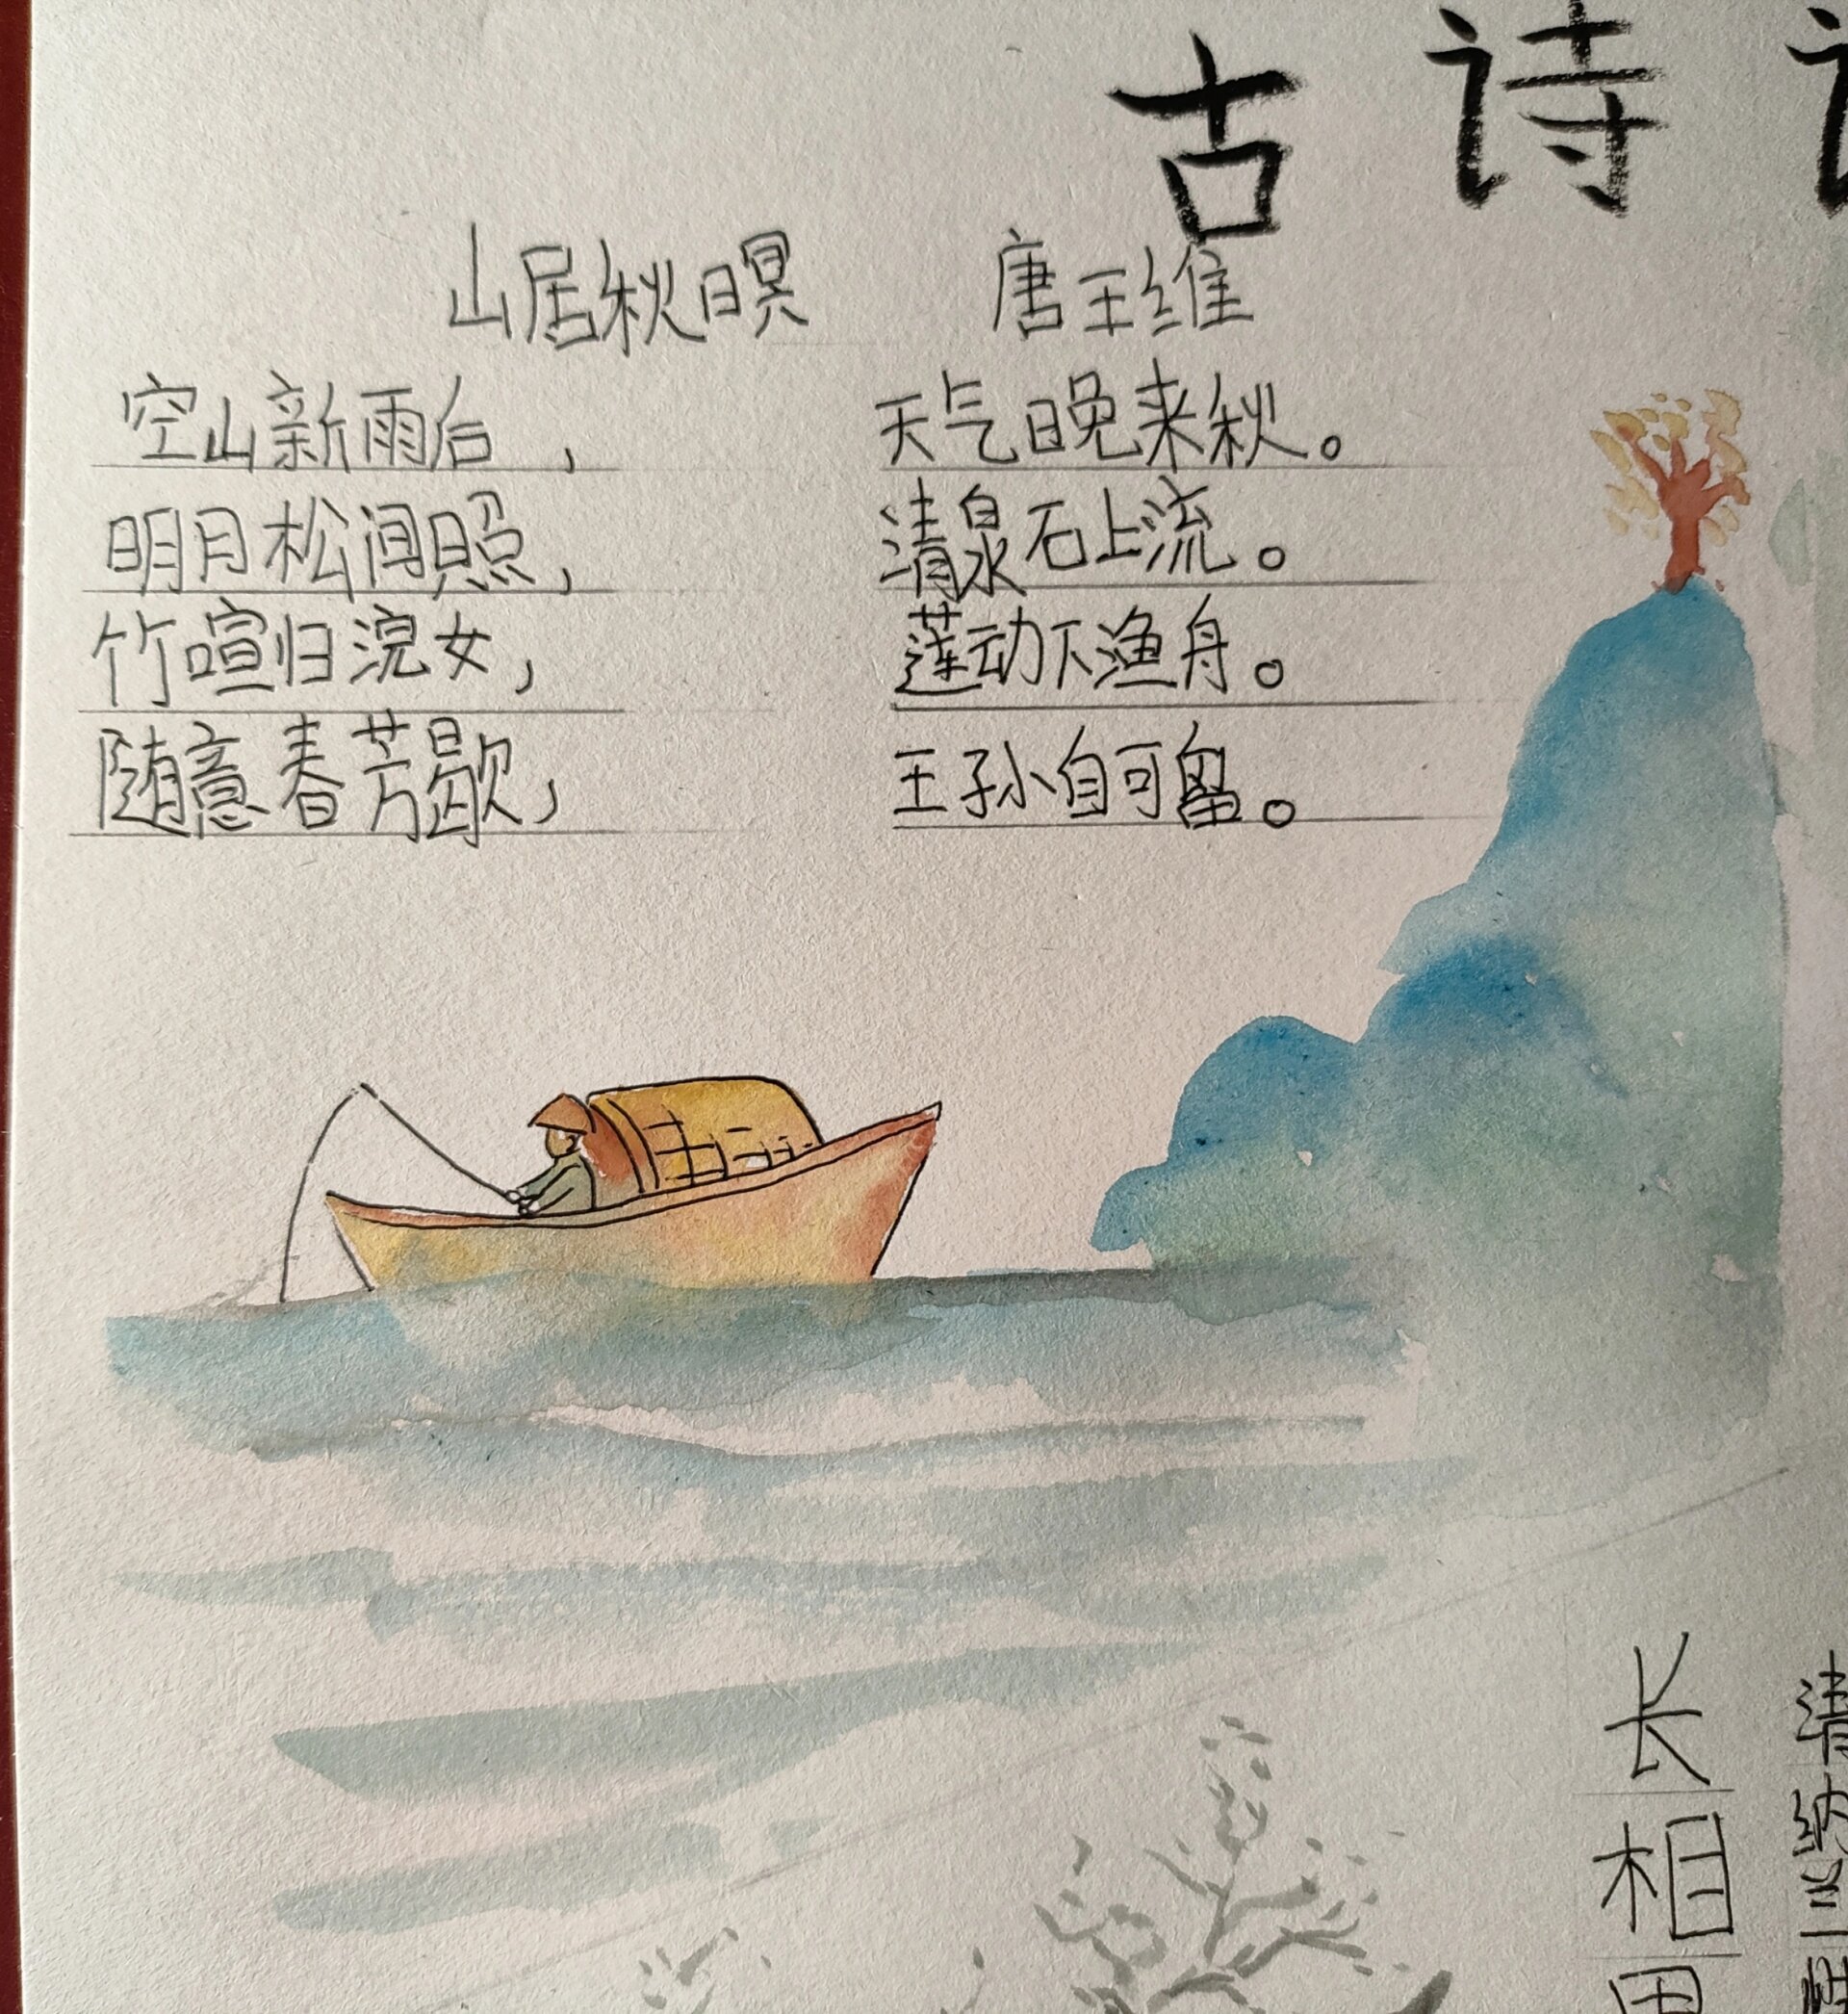 古诗
山居秋暝 唐王维
空山新雨后， 天气晚来秋。
明月松间照， 清泉石上流。
竹喧归浣女， 莲动下渔舟。
随意春芳歇， 王孙自可留。
长相
清纳兰